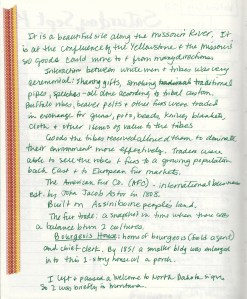 It is a beautiful site along the Missouri River. It
is at the confluence of the Yellowstone & the Missouri
so goods could move to & from many directions.
Interaction between white men & tribes was very
ceremonial: sharing gifts, smoking traditional
pipes, speeches - all done according to tribal custom.
Buffalo robes, beaver pelts & other furs were traded
in exchange for guns, pots, beads, knives, blankets,
cloth & other items of value to the tribes.
Goods the tribes received allowed them to dominate
their environment more effectively. Traders were
able to sell the robes & furs to a growing population
back East & to European fur markets.
The American Fur Co. (AFC) - international business
est. by John Jacob Astor in 1808.
Built on Assiniboine people's land.
The fur trade: a snapshot in time when there was
a balance b/wn 2 cultures.
Bourgeois House: home of bourgeois (field agent)
and chief clerk. By 1851 a smaller bldg was enlarged
into this 2-story house w/ a porch.
I left & passed a Welcome to North Dakota sign
so I was briefly in Montana.